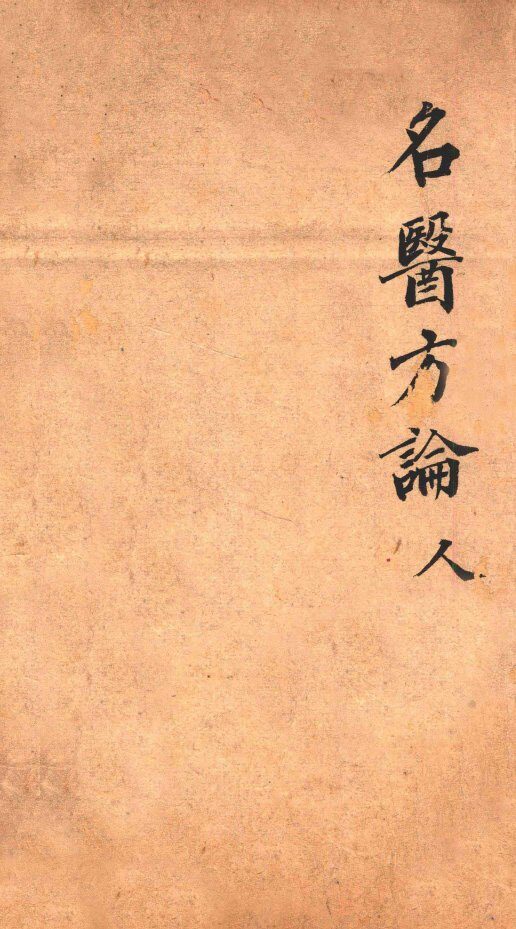 名醫方論 人